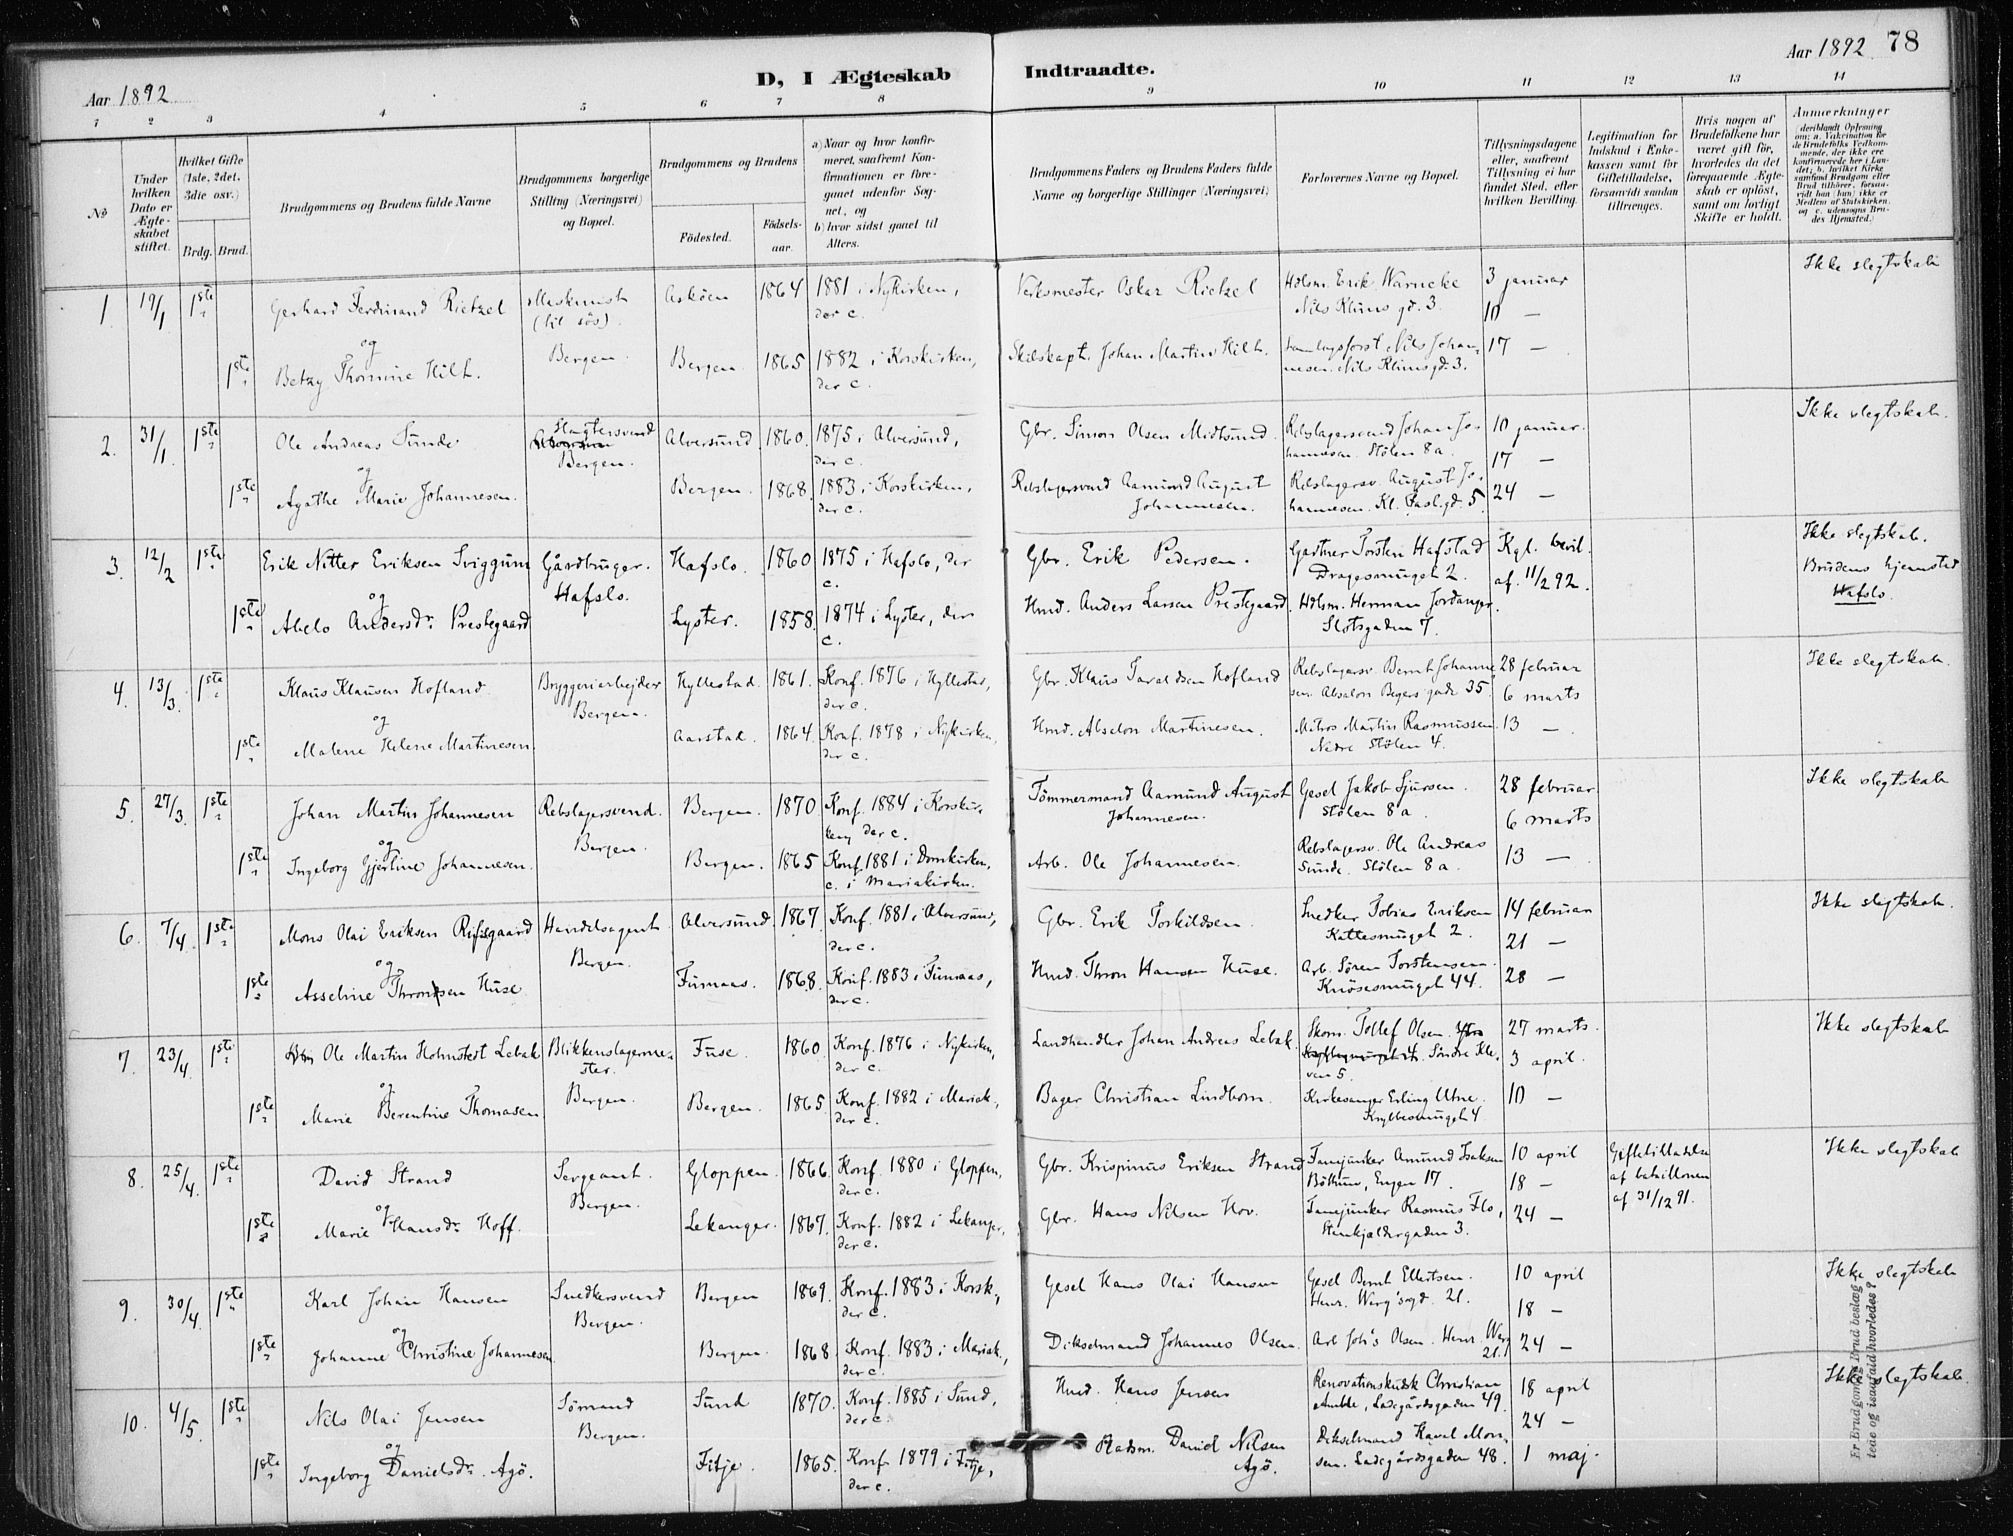 Aar 1892
D, I Ægteskab Indtraadte.
Aar 1892 78
1 2 3 4 5 6 7 8 9 10 11 12 13 14
No
Under hvilken Dato er Ægteskabet stiftet.
Hvilket Gifte (1ste, 2det, 3die osv.)
Brdg. Brud.
Brudgommens og Brudens fulde Navne
Brudgommens borgerlige Stilling (Næringsvei) og Bopæl.
Brudgommens og Brudens
Födested.
Födselsaar.
a) Naar og hvor konfirmeret, saafremt Konfirmationen er foregaaet udenfor Sognet, og
b) hvor sidst gaaet til Alters.
Brudgommens Faders og Brudens Faders fulde Navne og borgerlige Stillinger (Næringsvei)
Forlovernes Navne og Bopæl.
Tillysningsdagene eller, saafremt Tillysning ei har fundet Sted, efter hvilken Bevilling.
Legitimation for Indskud i Enkekassen samt for Giftetilladelse, forsaavidt saadan tiltrænges.
Hvis nogen af Brudefolkene har været gift för, hvorledes da det foregaaende Ægteskab er oplöst, samt om lovligt Skifte er holdt.
Anmærkninger
1. 19/1 1ste Gerhard Ferdinand Rietzel Maskinist (til sös). Bergen. Asköen 1864 1881 i Nykirken, der c. Værksmester Oskar Rietzel Hdlsm. Erik Warncke Nils Klims gd. 3. 3 januar 10 — Ikke slegtskab
og
1ste Betzy Thomine Hilt. Bergen. 1865 1882 i Korskirken, der c. Skibskapt. Johan Martin Hilt. Nils Johannesen. Nils Klimsgd. 3. 17 —
2. 31/1 1ste Ole Andreas Sunde Slagtersvend Bergen. Alversund 1860. 1875 i Alversund, der c. Gbr. Simon Olsen Midtsund. Rebslagersvend Johan Johannesen. Stölen 8a. 10 januar. 17 — Ikke slegtskab.
og
1ste Agathe Marie Johannesen. Bergen. 1868. 1883 i Korskirken, der c. Rebslagersvend Aamund August Johannesen. Rebslagersv. August Johannesen. Kl. 5. 24 —
3. 12/2 1ste Erik Nitter Eriksen Sviggum Gårdbruger. Hafslo. Hafslo. 1860 1875 i Hafslo, der c. Gbr. Erik Pedersen. Gartner Torsten Hafstad Dragesmuget 2. Kgl. bevil. af. 11/2 92. Ikke slegtskab. Brudens hjemsted Hafslo.
og
1ste Abelo Andersdr. Prestegaard Lyster. 1858. 1874 i Lyster, der c. Hmd. Anders Larsen Prestegaard. Hdlsm. Herman Jordanger. Slotsgaden 7.
4. 13/3. 1ste Klaus Klausen Hofland Bryggeriarbejder Bergen. Hyllestad. 1861. Konf. 1876 i Hyllestad, der c. Gbr. Klaus Hofland Rebslagersv. Bernt Johannesen. Absalon Beyers gade 35. 28 februar 6 marts Ikke slegtskab.
og
1ste Malene Helene Martinesen. Aarstad. 1864. Konf. 1878 i Nykirken, der c. Hmd. Abselon Martinesen. Matros Martin Rasmussen Nedre Stölen 4. 13 —
5. 27/3. 1ste Johan Martin Johannesen Rebslagersvend. Bergen. Bergen. 1870 Konf. 1884 i Korskirken, der c. Tömmermand Aamund August Johannesen. Gesel Jakob Sjursen. Stölen 8a. 28 februar 6 marts Ikke slegtskab
og
1ste Ingeborg Gjertine Johannesen. Bergen. 1865 Konf. 1881 i Domkirken, c. i Mariakirken. Arb. Ole Johannesen. Rebslagersv. Ole Andreas Sunde. Stölen 8a. 13 —
6. 7/4. 1ste Mons Olai Eriksen Handelsagent Bergen. Alversund. 1867. Konf. 1881 i Alversund, der c. Gbr. Erik Torkildsen. Snedker Tobias Eriksen Kattesmuget 2. 14 februar 21 — Ikke slegtskab.
og
1ste Asseline Thronsen Huse. Furnaas. 1868. Konf. 1883 i Furnaas, der c. Hmd. Thron Hansen Huse. Arb. Sören Torstensen. Knösesmuget 44. 28 —
7. 23/4. 1ste Ole Martin Holmstedt Lebak Blikkenslagermester. Bergen. Fuse. 1860. Konf. 1876 i Nykirken, der c. Landhandler Johan Andreas Lebak. Skom. Tollef Olsen Söndre Kleven 5. 27 marts. 3 april. Ikke slegtskab
og
1ste Marie Berentine Thomasen. Bergen. 1865. Konf. 1882 i Mariak., der c. Bager Christian Lindbom. Kirkesanger Erling Utne. Krybbesmuget 4. 10 —
8. 25/4. 1ste David Strand Sergeant. Bergen. Gloppen. 1866. Konf. 1880 i Gloppen, der c. Gbr. Krispinus Eriksen Strand Fanejunker Amund Isaksen Böthun, Engen 17. 10 april 18 — Giftetilladelse af bataillonen af 31/12 91. Ikke slegtskab
og
1ste Marie Hansdr. Hoff. Lekanger. 1867. Konf. 1882 i Lekanger, der c. Gbr. Hans Nilsen Hov. Fanejunker Rasmus Flo, Steinkjeldergaden 3. 24 —
9. 30/4. 1ste Karl Johan Hansen Snedkersvend Bergen. Bergen 1869. Konf. 1883 i Korsk., der c. Gesel Hans Olai Hansen Gesel Bernt Ellertsen. Henr. Werg'sgd. 21. 10 april 18 — Ikke slegtskab
og
1ste Johanne Christine Johannesen. Bergen. 1868. Konf. 1883 i Mariak., der c. Dikselmand Johannes Olsen. Arb. Joh's Olsen. Henr. Werg. 21. 24 —
10. 4/5. 1ste Nils Olai Jensen Sömand Bergen. Sund 1870. Konf. 1885 i Sund, der c. Hmd. Hans Jensen Renovationskusk Christian Amble, Ladegårdsgaden 49. 18 april 24 — Ikke slegtskab.
og
1ste Ingeborg Danielsdr. Agö. Fitje. 1865. Konf. 1879 i Fitje, der c. Pladsm. Daniel Nilsen Agö. Dikselmand Monsen. Ladegårdsgaden 48. 1 maj.
Er Brudgom og Brud beslægtede og isaafald hvorledes?